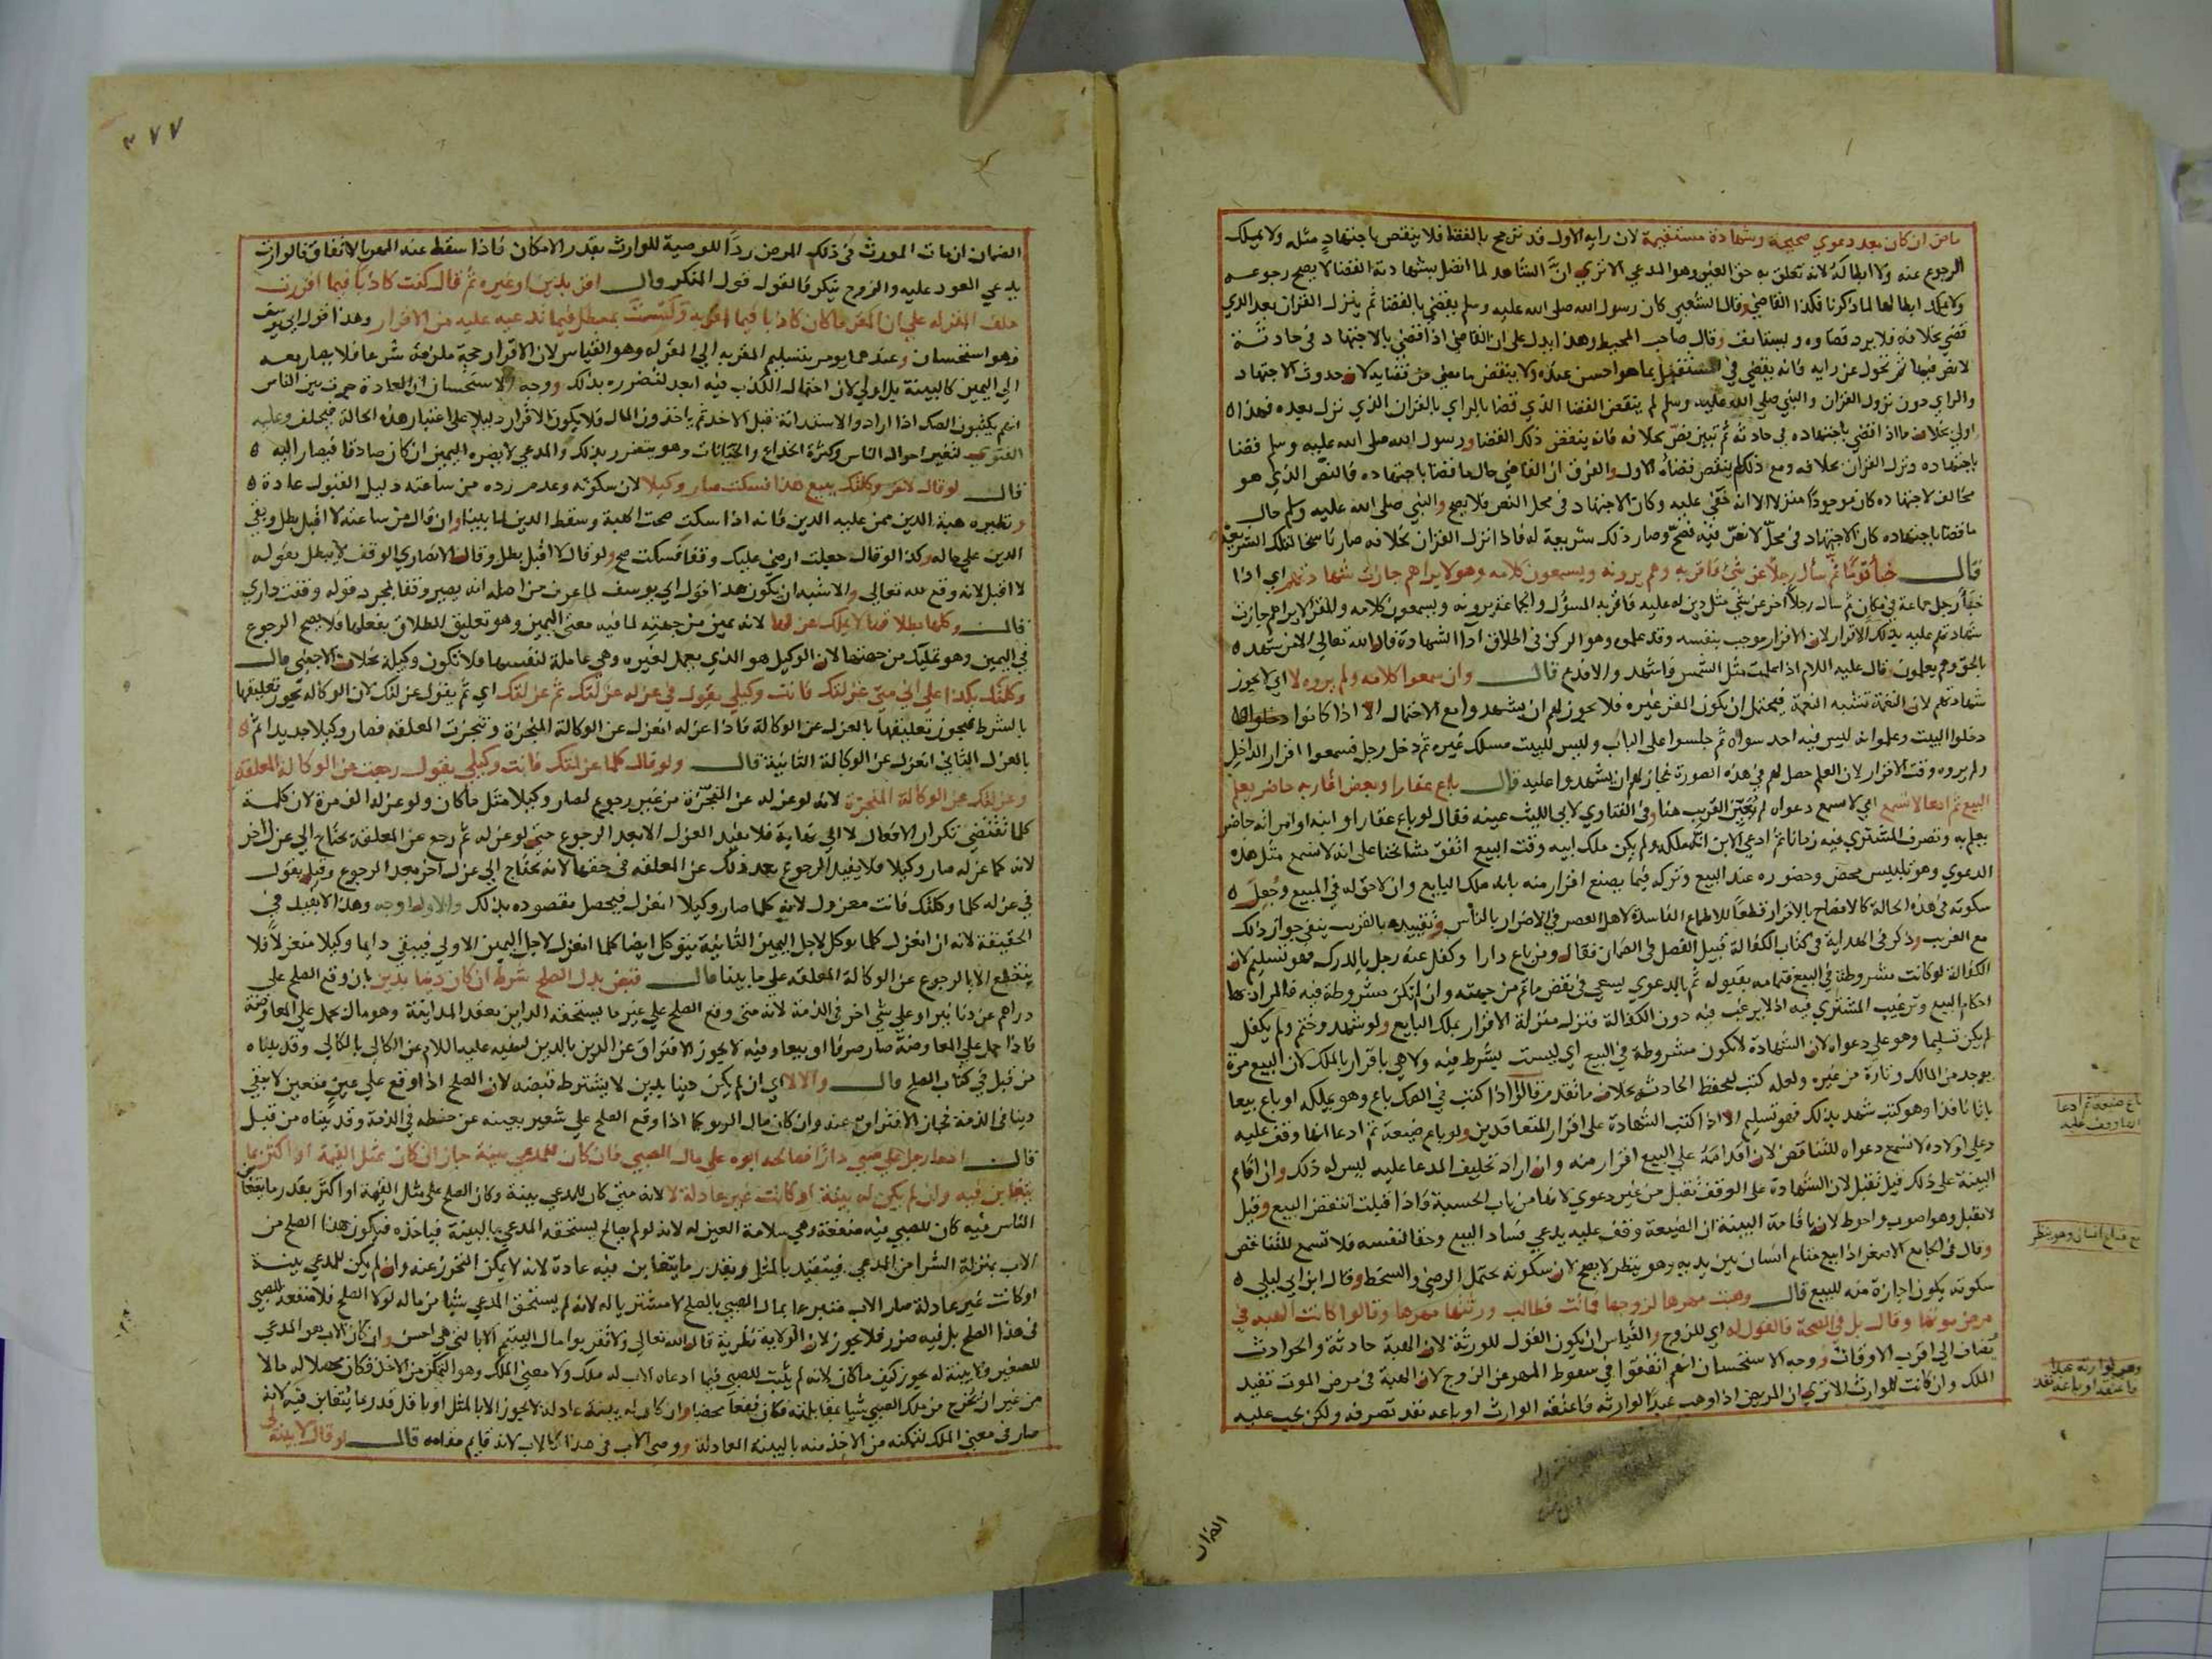 ماض ان كان بعد دعوي صحيحة وشهادة مستقيمة لان رايه الاول قد ترجح بالقضا فلا ينقض باجتهاد مثله ولا يملك
الرجوع عنه ولا ابطاله لانه تعلق به حق الغير وهو المدعي الا تري ان الشاهد لما اتصل بشهادته القضا لا يصح رجوعه
ولا يملك ابطالها لما ذكرنا فكذا القاضي وقال الشعبي كان رسول الله صلي الله عليه وسلم يقضي بالقضا ثم ينزل القران بعد الذي
قضي بخلافه فلا يرد قضاوه ويستانف وقال صاحب المحيط وهذا يدل علي ان القاضي اذا قضي بالاجتهاد في حادثة
لا نص فيها ثم تحول عن رايه فانه يقضي في المستقبل بما هو احسن عنده ولا ينقض ما مضي من قضايه لان حدوث الاجتهاد
والراي دون نزول القران والنبي صلي الله عليه وسلم لم ينقض القضا الذي قضا بالراي بالقران الذي نزل بعده فهذا
اولي بخلاف ما اذا قضي باجتهاده في حادثة ثم تبين نص بخلافه فانه ينقض ذلك القضا ورسول الله صلي الله عليه وسلم قضا
باجتهاده ونزل القران بخلافه ومع ذلك لم ينقض قضاه الاول والفرق ان القاضي حال ما قضا باجتهاده فالنص الذي هو
مخالف لاجتهاده كان موجودا منزلا الا انه خفي عليه وكان الاجتهاد في محل النص فلا يصح والنبي صلي الله عليه وسلم حال
ما قضا باجتهاده كان الاجتهاد في محل لا نص فيه فصح وصار ذلك شريعة له فاذا نزل القران بخلافه صار ناسخا لتلك الشريعة
قال خبا قوما ثم سال رجلا عن شي فاقر به وهم يرونه ويسمعون كلامه وهو لا يراهم جازت شهادتهم اي اذا
خبا رجل جماعة في مكان ثم سال رجلا اخر عن شي مثل دين له عليه فاقر به المسؤل والجماعة يرونه ويسمعون كلامه والمقر لا يراهم جازت
شهادتهم عليه بذلك الاقرار لان الاقرار موجب بنفسه وقد علموه وهو الركن في اطلاق ادا الشهادة قال الله تعالي الا من شهد
بالحق وهم يعلمون وقال عليه السلام اذا علمت مثل الشمس فاشهد والا فدع قال وان سمعوا كلامه ولم يروه لا اي لا يجوز
شهادتهم لان النغمة تشبه النغمة فيحتمل ان يكون المقر غيره فلا يجوز لهم ان يشهدوا مع الاحتمال الا اذا كانوا
دخلوا البيت وعلموا انه ليس فيه احد سواه ثم جلسوا علي الباب وليس للبيت مسلك غيره ثم دخل رجل فسمعوا اقرار الداخل
ولم يروه وقت الاقرار لان العلم حصل لهم في هذه الصورة فجاز لهم ان يشهدوا عليه قال باع عقارا وبعض اقاربه حاضر يعلم
البيع ثم ادعا لا تسمع اي لا تسمع دعواه لم يعين القريب هنا وفي الفتاوي لابي الليث عينه فقال لو باع عقارا وابنه او امراته حاضر
يعلم به وتصرف المشتري فيه زمانا ثم ادعي الابن انه ملكه ولم يكن ملك ابيه وقت البيع اتفق مشايخنا علي انه لا تسمع مثل هذه
الدعوي وهو تلبيس محض وحضوره عند البيع وتركه فيما يصنع اقرار منه بانه ملك البايع وان لا حق له في المبيع وجعل
سكوته في هذه الحالة كالافصاح بالاقرار قطعا للاطماع الفاسدة لاهل العصر في الاضرار بالناس وتقييده بالقريب ينفي جواز ذلك
مع الغريب وذكر في الهداية في كتاب الكفالة قبيل الفصل في الضمان فقال ومن باع دارا وكفل عنه رجل بالدرك فهو تسليم لان
الكفالة لو كانت مشروطة في البيع فتمامه بقبوله ثم بالدعوي يسعي في نقض ما تم من جهته وان لم تكن مشروطة فيه فالمراد بها
احكام البيع وترغيب المشتري فيه اذ لا يرغب فيه دون الكفالة فتنزل منزلة الاقرار بملك البايع ولو شهد وختم ولم يكفل
لم يكن تسليما وهو علي دعواه لان الشهادة لا تكون مشروطة في البيع اي ليست بشرط فيه ولا هي باقرار بالملك لان البيع مرة
يوجد من المالك وتارة من غيره ولعله كتب ليحفظ الحادثة بخلاف ما تقدم قالوا اذا كتب في الصك باع وهو يملكه او باع بيعا
باتا نافذا وهو كتب شهد بذلك فهو تسليم الا اذا كتب الشهادة علي اقرار المتعاقدين ولو باع ضيعة ثم ادعا انها وقف عليه
وعلي اولاده لا تسمع دعواه للتناقض لان اقدامه علي البيع اقرار منه وان اراد تحليف المدعا عليه ليس له ذلك وان اقام
البينة علي ذلك قيل تقبل لان الشهادة علي الوقف تقبل من غير دعوي لانها من باب الحسبة فاذا قبلت انتقض البيع وقيل
لا تقبل وهو اصوب واحوط لان باقامة البينة ان الضيعة وقف عليه يدعي فساد البيع وحقا لنفسه فلا تسمع للتناقض
وقال في الجامع الاصغر اذا بيع متاع انسان بين يديه وهو ينظر لا يصح لان سكوته يحتمل الرضي والسخط وقال ابن ابي ليلي
سكوته يكون اجازة منه للبيع قال وهبت مهرها لزوجها فماتت فطالب ورثتها مهرها وقالوا كانت الهبة في
مرض موتها وقال بل في الصحة فالقول له اي للزوج والقياس ان يكون القول للورثة لان الهبة حادثة والحوادث
تضاف الي اقرب الاوقات ووجه الاستحسان انهم اتفقوا في سقوط المهر عن الزوج لان الهبة في مرض الموت تفيد
الملك وان كانت للوارث الا تري ان المريض اذا وهب عبدا لوارثه فاعتقه الوارث او باعه نفذ تصرفه ولكن يجب عليه
باع ضيعة ثم ادعا
انها وقف عليه
بيع متاع انسان وهو ينظر
وهب لوارثه عبدا
فاعتقه او باعه نفذ
الضمان
٣٧٧
الضمان ان مات المورث في ذلك المرض ردا للوصية للوارث بقدر الامكان فاذا سقط عنه المهر بالاتفاق فالوارث
يدعي العود عليه والزوج ينكر فالقول قول المنكر قال اقر بدين او غيره ثم قال كنت كاذبا فيما اقررت
حلف المقر له علي ان المقر ما كان كاذبا فيما اقر به ولست بمبطل فيما تدعيه عليه من الاقرار وهذا قول ابي يوسف
وهو استحسان وعندهما يومر بتسليم المقر به الي المقر له وهو القياس لان الاقرار حجة ملزمة شرعا فلا يصار معه
الي اليمين كالبينة بل اولي لان احتمال الكذب فيه ابعد لتضرره بذلك ووجه الاستحسان ان العادة جرت بين الناس
انهم يكتبون الصك اذا ارادوا الاستدانة قبل الاخذ ثم ياخذون المال فلا يكون الاقرار دليلا علي اعتبار هذه الحالة فيحلف وعليه
الفتوي لتغير احوال الناس وكثرة الخداع والخيانات وهو يتضرر بذلك والمدعي لا يضره اليمين ان كان صادقا فيصار اليه
قال لو قال لاخر وكلتك ببيع هذا فسكت صار وكيلا لان سكوته وعدم رده من ساعته دليل القبول عادة
ونظيره هبة الدين ممن عليه الدين فانه اذا سكت صحت الهبة وسقط الدين لما بينا وان قال من ساعته لا اقبل بطل وبقي
الدين علي حاله وكذا لو قال جعلت ارضي عليك وقفا فسكت صح ولو قال لا اقبل بطل وقال الانصاري الوقف لا يبطل بقوله
لا اقبل لانه وقع لله تعالي والاشبه ان يكون هذا قول ابي يوسف لما عرف من اصله انه يصير وقفا بمجرد قوله وقفت داري
قال وكلها بطلاقها لا يملك عزلها لانه يمين من جهته لما فيه معني اليمين وهو تعليق الطلاق بفعلها فلا يصح الرجوع
في اليمين وهو تمليك من جهتها لان الوكيل هو الذي يعمل لغيره وهي عاملة لنفسها فلا تكون وكيلة بخلاف الاجنبي قال
وكلتك بكذا علي اني متي عزلتك فانت وكيلي يقول في عزله عزلتك ثم عزلتك اي ثم يقول عزلتك لان الوكالة يجوز تعليقها
بالشرط فيجوز تعليقها بالعزل عن الوكالة فاذا عزله انعزل عن الوكالة المنجزة وتنجزت المعلقة فصار وكيلا جديدا ثم
بالعزل الثاني انعزل عن الوكالة الثانية قال ولو قال كلما عزلتك فانت وكيلي يقول رجعت عن الوكالة المعلقة
وعزلتك عن الوكالة المنجزة لانه لو عزله عن المنجزة من غير رجوع لصار وكيلا مثل ما كان ولو عزله الف مرة لان كلمة
كلما تقتضي تكرار الافعال لا الي نهاية فلا يفيد العزل الا بعد الرجوع حتي لو عزله ثم رجع عن المعلقة يحتاج الي عزل اخر
لانه كما عزله صار وكيلا فلا يفيد الرجوع بعد ذلك عن المعلقة في حقها لانه يحتاج الي عزل اخر بعد الرجوع وقيل يقول
في عزله كلما وكلتك فانت معزول لانه كلما صار وكيلا انعزل فيحصل مقصوده بذلك والاول اوجه وهذا لا يفيد في
الحقيقة لانه ان انعزل كلما توكل لاجل اليمين الثانية يتوكل ايضا كلما انعزل لاجل اليمين الاولي فيبقي دايما وكيلا منعزلا فلا
ينقطع الا بالرجوع عن الوكالة المعلقة علي ما بينا قال قبض بدل الصلح شرط ان كان دينا بدين بان وقع الصلح علي
دراهم عن دنانير او علي شي اخر في الذمة لانه متي وقع الصلح علي غير ما يستحقه الداين بعقد المداينة وهو مال يحمل علي المعاوضة
فاذا حمل علي المعاوضة صار صرفا او بيعا وفيه لا يجوز الافتراق عن الدين بالدين لنهيه عليه السلام عن الكالي بالكالي وقد بيناه
من قبل في كتاب الصلح قال والا لا اي ان لم يكن دينا بدين لا يشترط قبضه لان الصلح اذا وقع علي عين متعين لا يبقي
دينا في الذمة فجاز الافتراق عنه وان كان مال الربو كما اذا وقع الصلح علي شعير بعينه عن حنطة في الذمة وقد بيناه من قبل
قال ادعا رجل علي صبي دارا فصالحه ابوه علي مال الصبي فان كان للمدعي بينة جاز ان كان بمثل القيمة او اكثر بما
يتغابن فيه وان لم يكن له بينة او كانت غير عادلة لا لانه متي كان للمدعي بينة وكان الصلح علي مثل القيمة او اكثر بقدر ما يتغابن
الناس فيه كان للصبي فيه منفعة وهي سلامة العين له لانه لو لم يصالح يستحقه المدعي بالبينة فياخذه فيكون هذا الصلح من
الاب بمنزلة الشرا من المدعي فيتقيد بالمثل وبقدر ما يتغابن فيه عادة لانه لا يمكن التحرز عنه وان لم يكن للمدعي بينة
او كانت غير عادلة صار الاب متبرعا بمال الصبي بالصلح لا مشتريا له لانه لم يستحق المدعي شيا من ماله لولا الصلح فلا منفعة للصبي
في هذا الصلح بل فيه ضرر فلا يجوز لان الولاية نظرية قال الله تعالي ولا تقربوا مال اليتيم الا بالتي هي احسن وان كان الاب هو المدعي
للصغير ولا بينة له يجوز كيف ما كان لانه لم يثبت للصبي فيما ادعاه الاب له ملك ولا معني الملك وهو التمكن من الاخذ فكان محصلا له مالا
من غير ان يخرج من ملك الصبي شيا بمقابلته فكان نفعا محضا وان كان له بينة عادلة لا يجوز الا بالمثل او باقل قدر ما يتغابن فيه لانه
صار في معني الملك لتمكنه من الاخذ منه بالبينة العادلة ووصي الاب في هذا كالاب لانه قايم مقامه قال لو قال لا بينة لي